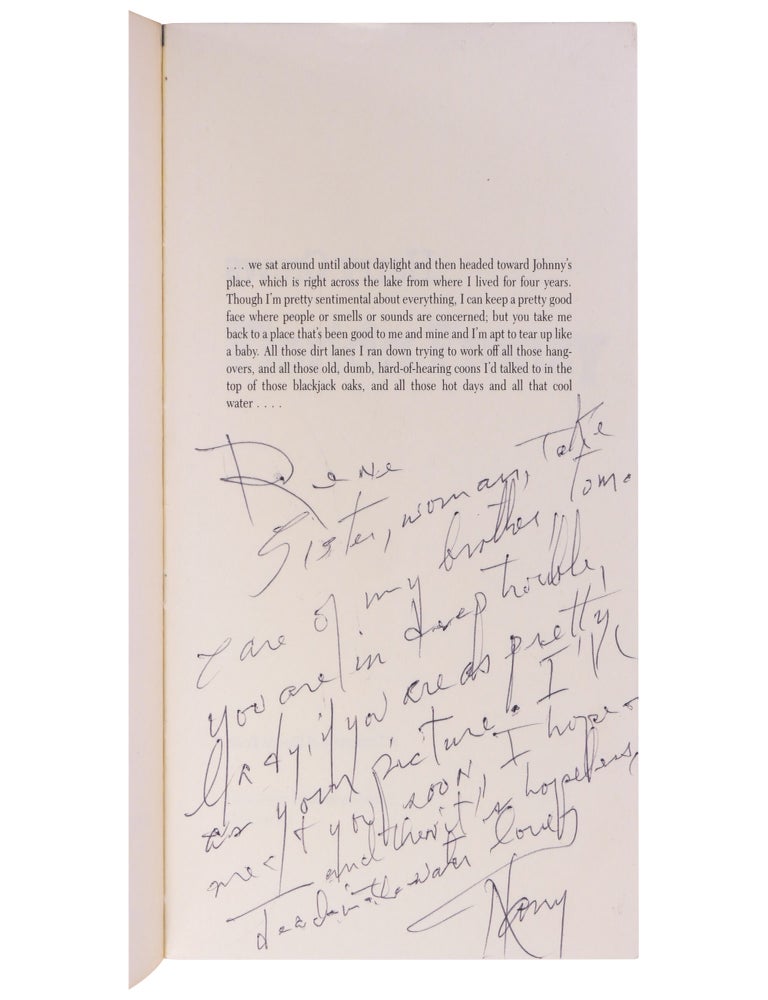 . . . we sat around until about daylight and then headed toward Johnny's
place, which is right across the lake from where I lived for four years.
Though I'm pretty sentimental about everything, I can keep a pretty good
face where people or smells or sounds are concerned; but you take me
back to a place that's been good to me and mine and I'm apt to tear up like
a baby. All those dirt lanes I ran down trying to work off all those hang-
overs, and all those old, dumb, hard-of-hearing coons I'd talked to in the
top of those blackjack oaks, and all those hot days and all that cool
water . . . .
Rene
Sister, woman, take
care of my brother Tom.
you are in deep trouble,
lady, if you are as pretty
as your picture. I'll
meet you soon, I hope—
and then it's hopeless,
dead in the water love,